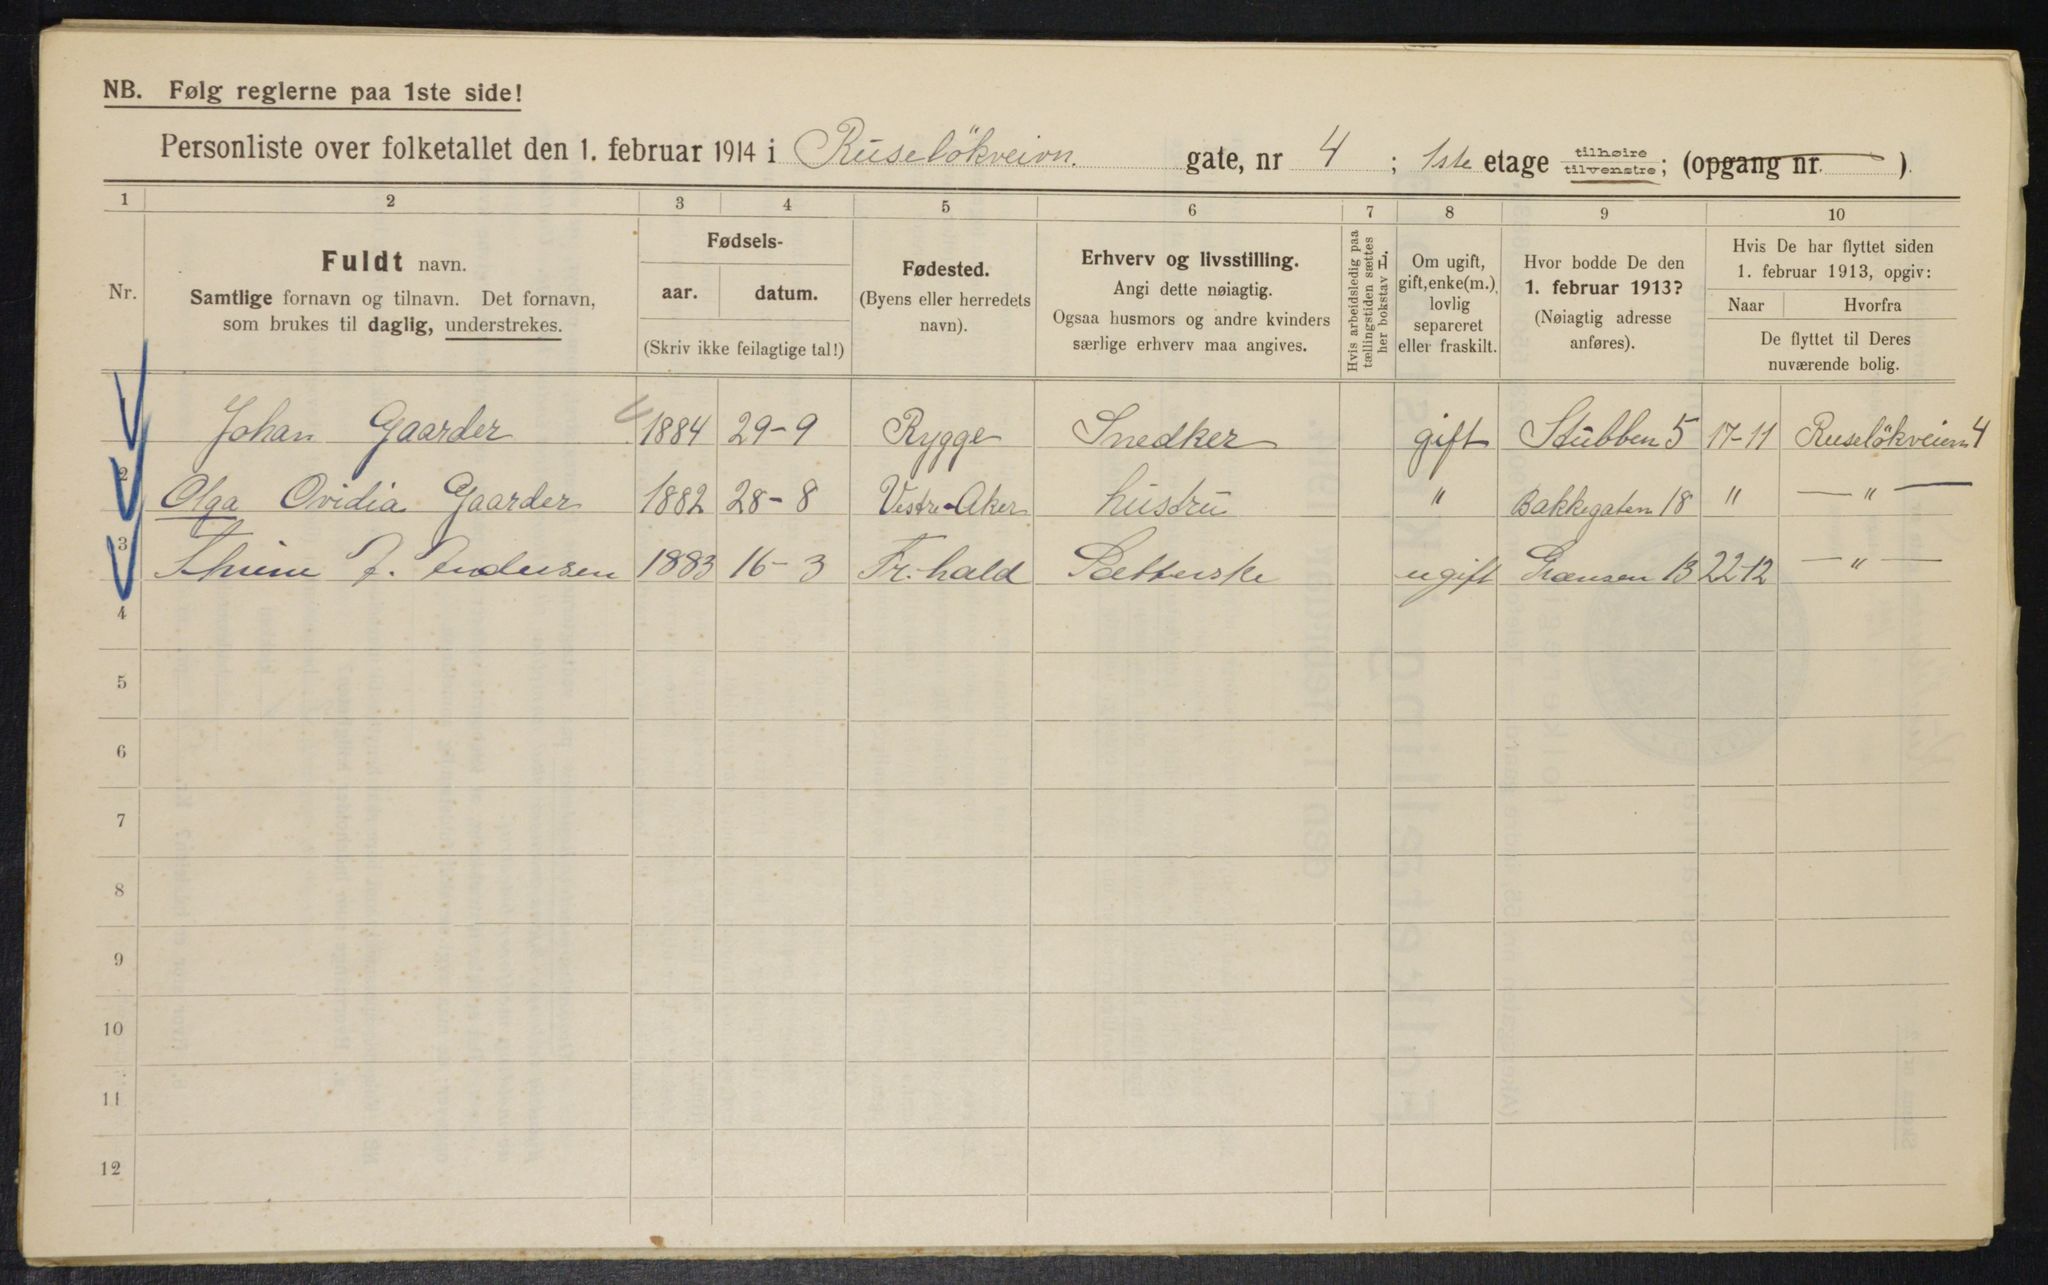 NB. Følg reglerne paa 1ste side!
Personliste over folketallet den 1. februar 1914 i Ruseløkveivn. gate, nr 4 ; 1ste etage tilhøire tilvenstre; (opgang nr. ).
1 2 3 4 5 6 7 8 9 10
Nr.
Fuldt navn.
Samtlige fornavn og tilnavn. Det fornavn,
som brukes til daglig, understrekes.
Fødsels-
aar. datum.
(Skriv ikke feilagtige tal!)
Fødested.
(Byens eller herredets
navn).
Erhverv og livsstilling.
Angi dette nøiagtig.
Ogsaa husmors og andre kvinders
særlige erhverv maa angives.
Hvis arbeidsledig paa
tællingstiden sættes
her bokstav L.
Om ugift,
gift, enke(m.),
lovlig
separeret
eller fraskilt.
Hvor bodde De den
1. februar 1913?
(Nøiagtig adresse
anføres).
Hvis De har flyttet siden
1. februar 1913, opgiv:
Naar Hvorfra
De flyttet til Deres
nuværende bolig.
1 Johan Gaarder 1884 29-9 Rygge Snedker gift Stubben 5 17-11 Ruselökveien 4
2 Olga Ovidia Gaarder 1882 28-8 Vestre-Aker hustru " Bakkegaten 18 " — " —
3 J. Andersen 1883 16-3 Fr.hald ugift Grænsen 13 22-12 — " —
4
5
6
7
8
9
10
11
12